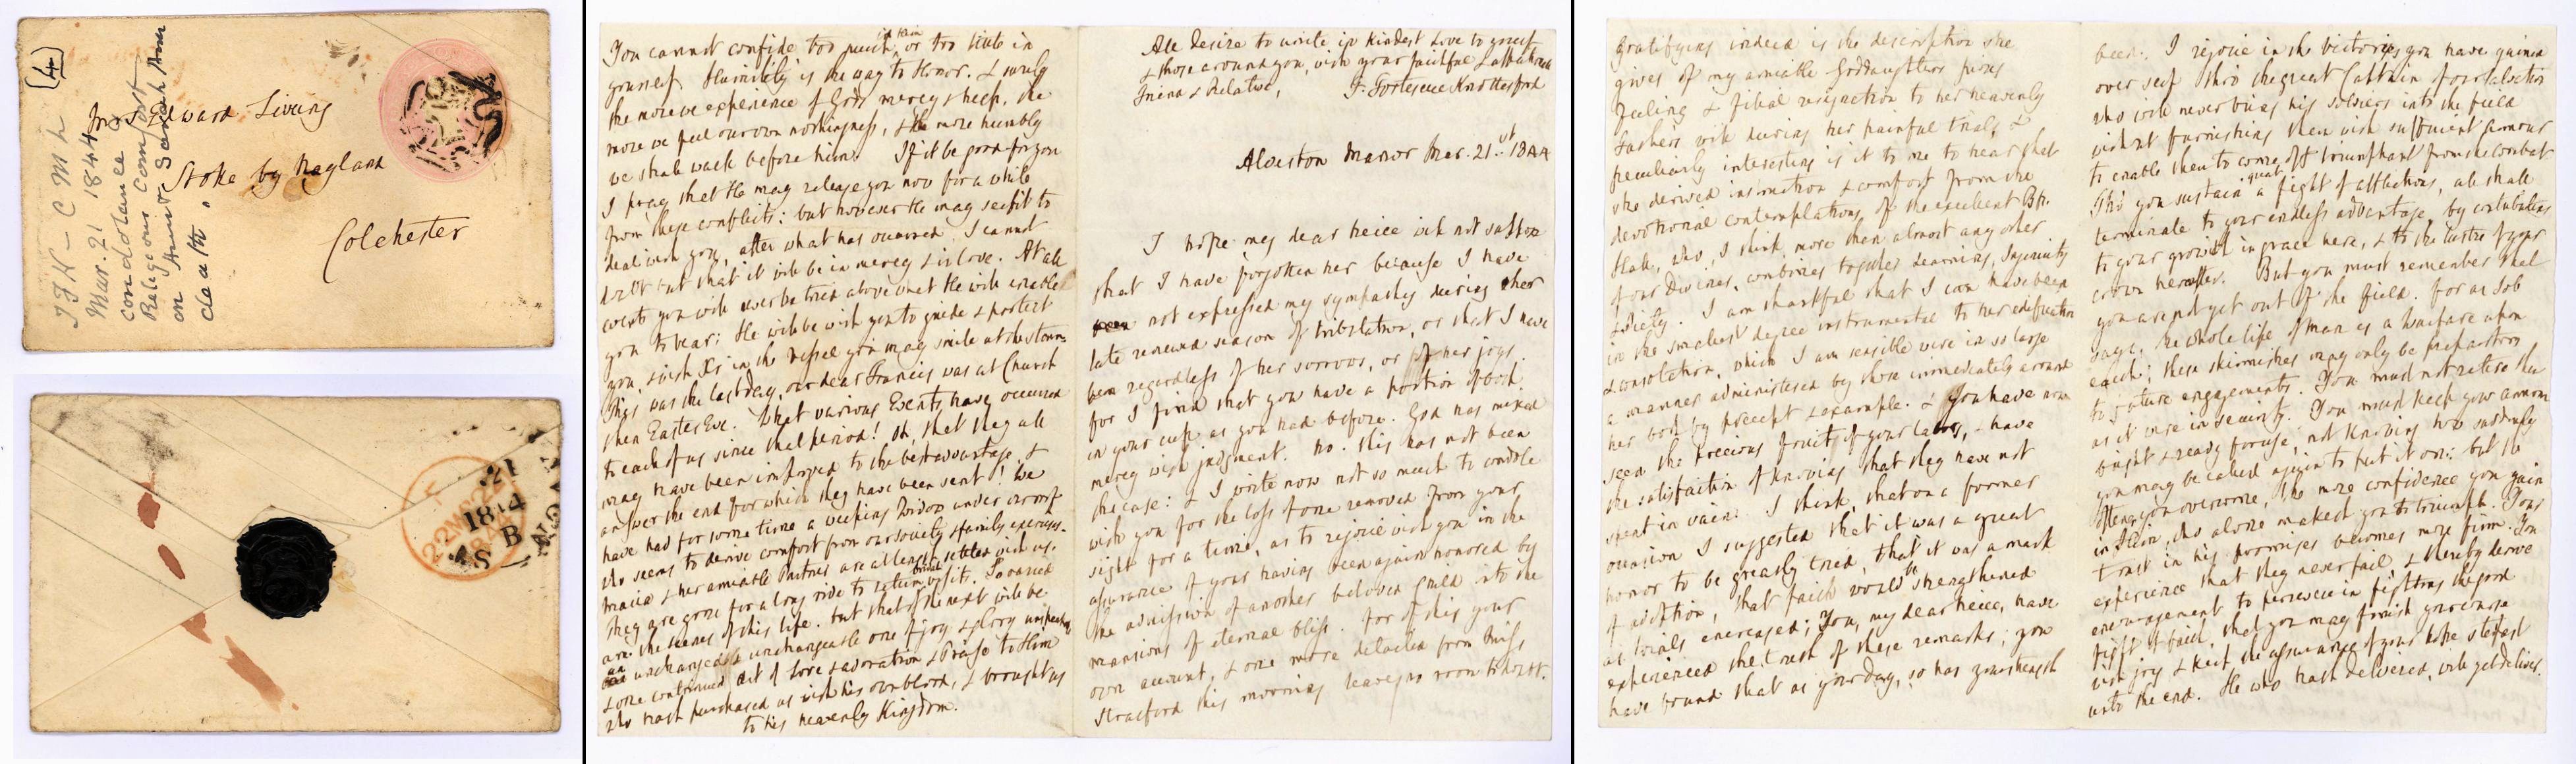 (4)
Mrs Edward Liveing
Stoke by Nayland
Colchester
JFK - C M L
Mar. 21 1844
condolence &
Religeous comfort
on Aunt Sarah Ann
death "
21
1844
22 MR 22
You cannot confide too much in him or too little in
yourself. Humility is the way to Honor. & surely
the more we experience of Gods mercy & help, the
more we feel our own nothingness, & the more humbly
we shall walk before him. If it be good for you
I pray that He may release you now for a while
from these conflicts: but however He may see fit to
deal with you, after what has occurred, I cannot
doubt but that it will be in mercy & in love. At all
events you will never be tried above what He will enable
you to bear: He will be with you to guide & protect
you, & with Xt in the vessel you may smile at the storm.
This was the last day, our dear Francis was at Church
then Easter Eve. What various Events have occurred
to each of us since that period! Oh, that they all
may have been improved to the best advantage, &
answer the end for which they have been sent! We
have had for some time a weeping Widow under our roof
who seems to derive comfort from our society & family exercises.
Maria & her amiable Partner are at length settled with us.
They are gone for a long ride to return bridal visits. So varied
are the scenes of this life. but that of the next will be
an unchanged & unchangeable one of joy & glory unspeakable
& one continued act of love & adoration & Praise to Him
who hath purchased us with his own blood, & brought us
to his heavenly Kingdom.
All desire to unite in kindest Love to yourself
& those around you, with your faithful & affectionate
Friend & Relative, F. Fortescue Knottesford
Alveston Manor Mar. 21.st 1844
I hope my dear Neice will not suppose
that I have forgotten her because I have
not expressed my sympathy during her
late renewed season of tribulation, or that I have
been regardless of her sorrows, or of her joys.
for I find that you have a portion of both
in your cup as you had before. God has mixed
mercy with judgment. No. this has not been
the case: & I write now not so much to condole
with you for the loss of one removed from your
sight for a time, as to rejoice with you in the
assurance of your having been again honored by
the admission of another beloved Child into the
mansions of eternal bliss. for of this your
own account, & one more detailed from Miss
Stratford this morning leaves no room to doubt.
Gratifying indeed is the description she
gives of my amiable Goddaughters pious
feeling & filial resignation to her heavenly
Fathers will during her painful trial, &
peculiarly interesting is it to me to hear that
she derived instruction & comfort from the
devotional contemplations of the excellent Bp.
Hall, who, I think more than almost any other
of our Divines, combines together Learning, Ingenuity
& Piety. I am thankful that I can have been
in the smallest degree instrumental to her edification
& consolation, which I am sensible were in so large
a manner administered by those immediately around
her both by precept & example. & you have now
seen the precious fruits of your labors, & have
the satisfaction of knowing that they have not
spent in vain. I think, that on a former
occasion I suggested that it was a great
honor to be greatly tried, that it was a mark
of adoption, that faith would be strengthened
as trials encreased; You, my dear Neice, have
experienced the truth of these remarks; you
have found that as your day, so has your strength
been. I rejoice in the victories you have gained
over self thro' the great Captain of our salvation
who will never bring his soldiers into the field
without furnishing them with sufficient armour
to enable them to come off triumphant from the combat
Tho' you sustain a great fight of afflictions, all shall
terminate to your endless advantage, by contributing
to your growth in grace here, & to the lustre of your
crown hereafter. But you must remember that
you are not yet out of the field. for as Job
says, the whole life of man is a Warfare upon
earth; these skirmishes may only be preparatory
to future engagements. You must not retire then
as it were in security. You must keep your armour
bright & ready for use, not knowing how suddenly
you may be called again to put it on: but the
oftener you overcome, the more confidence you gain
in Him, who alone maketh you to triumph. Your
trust in his promises becomes more firm. You
experience that they never fail, & thereby derive
encouragement to persevere in fighting the good
fight of faith, that you may finish your course
with joy & keep the assurance of your hope stedfast
unto the end. He who hath delivered, will yet deliver.